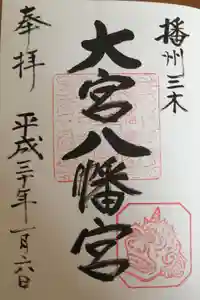 播州三木
大宮八幡宮
奉拝
平成三十年一月六日